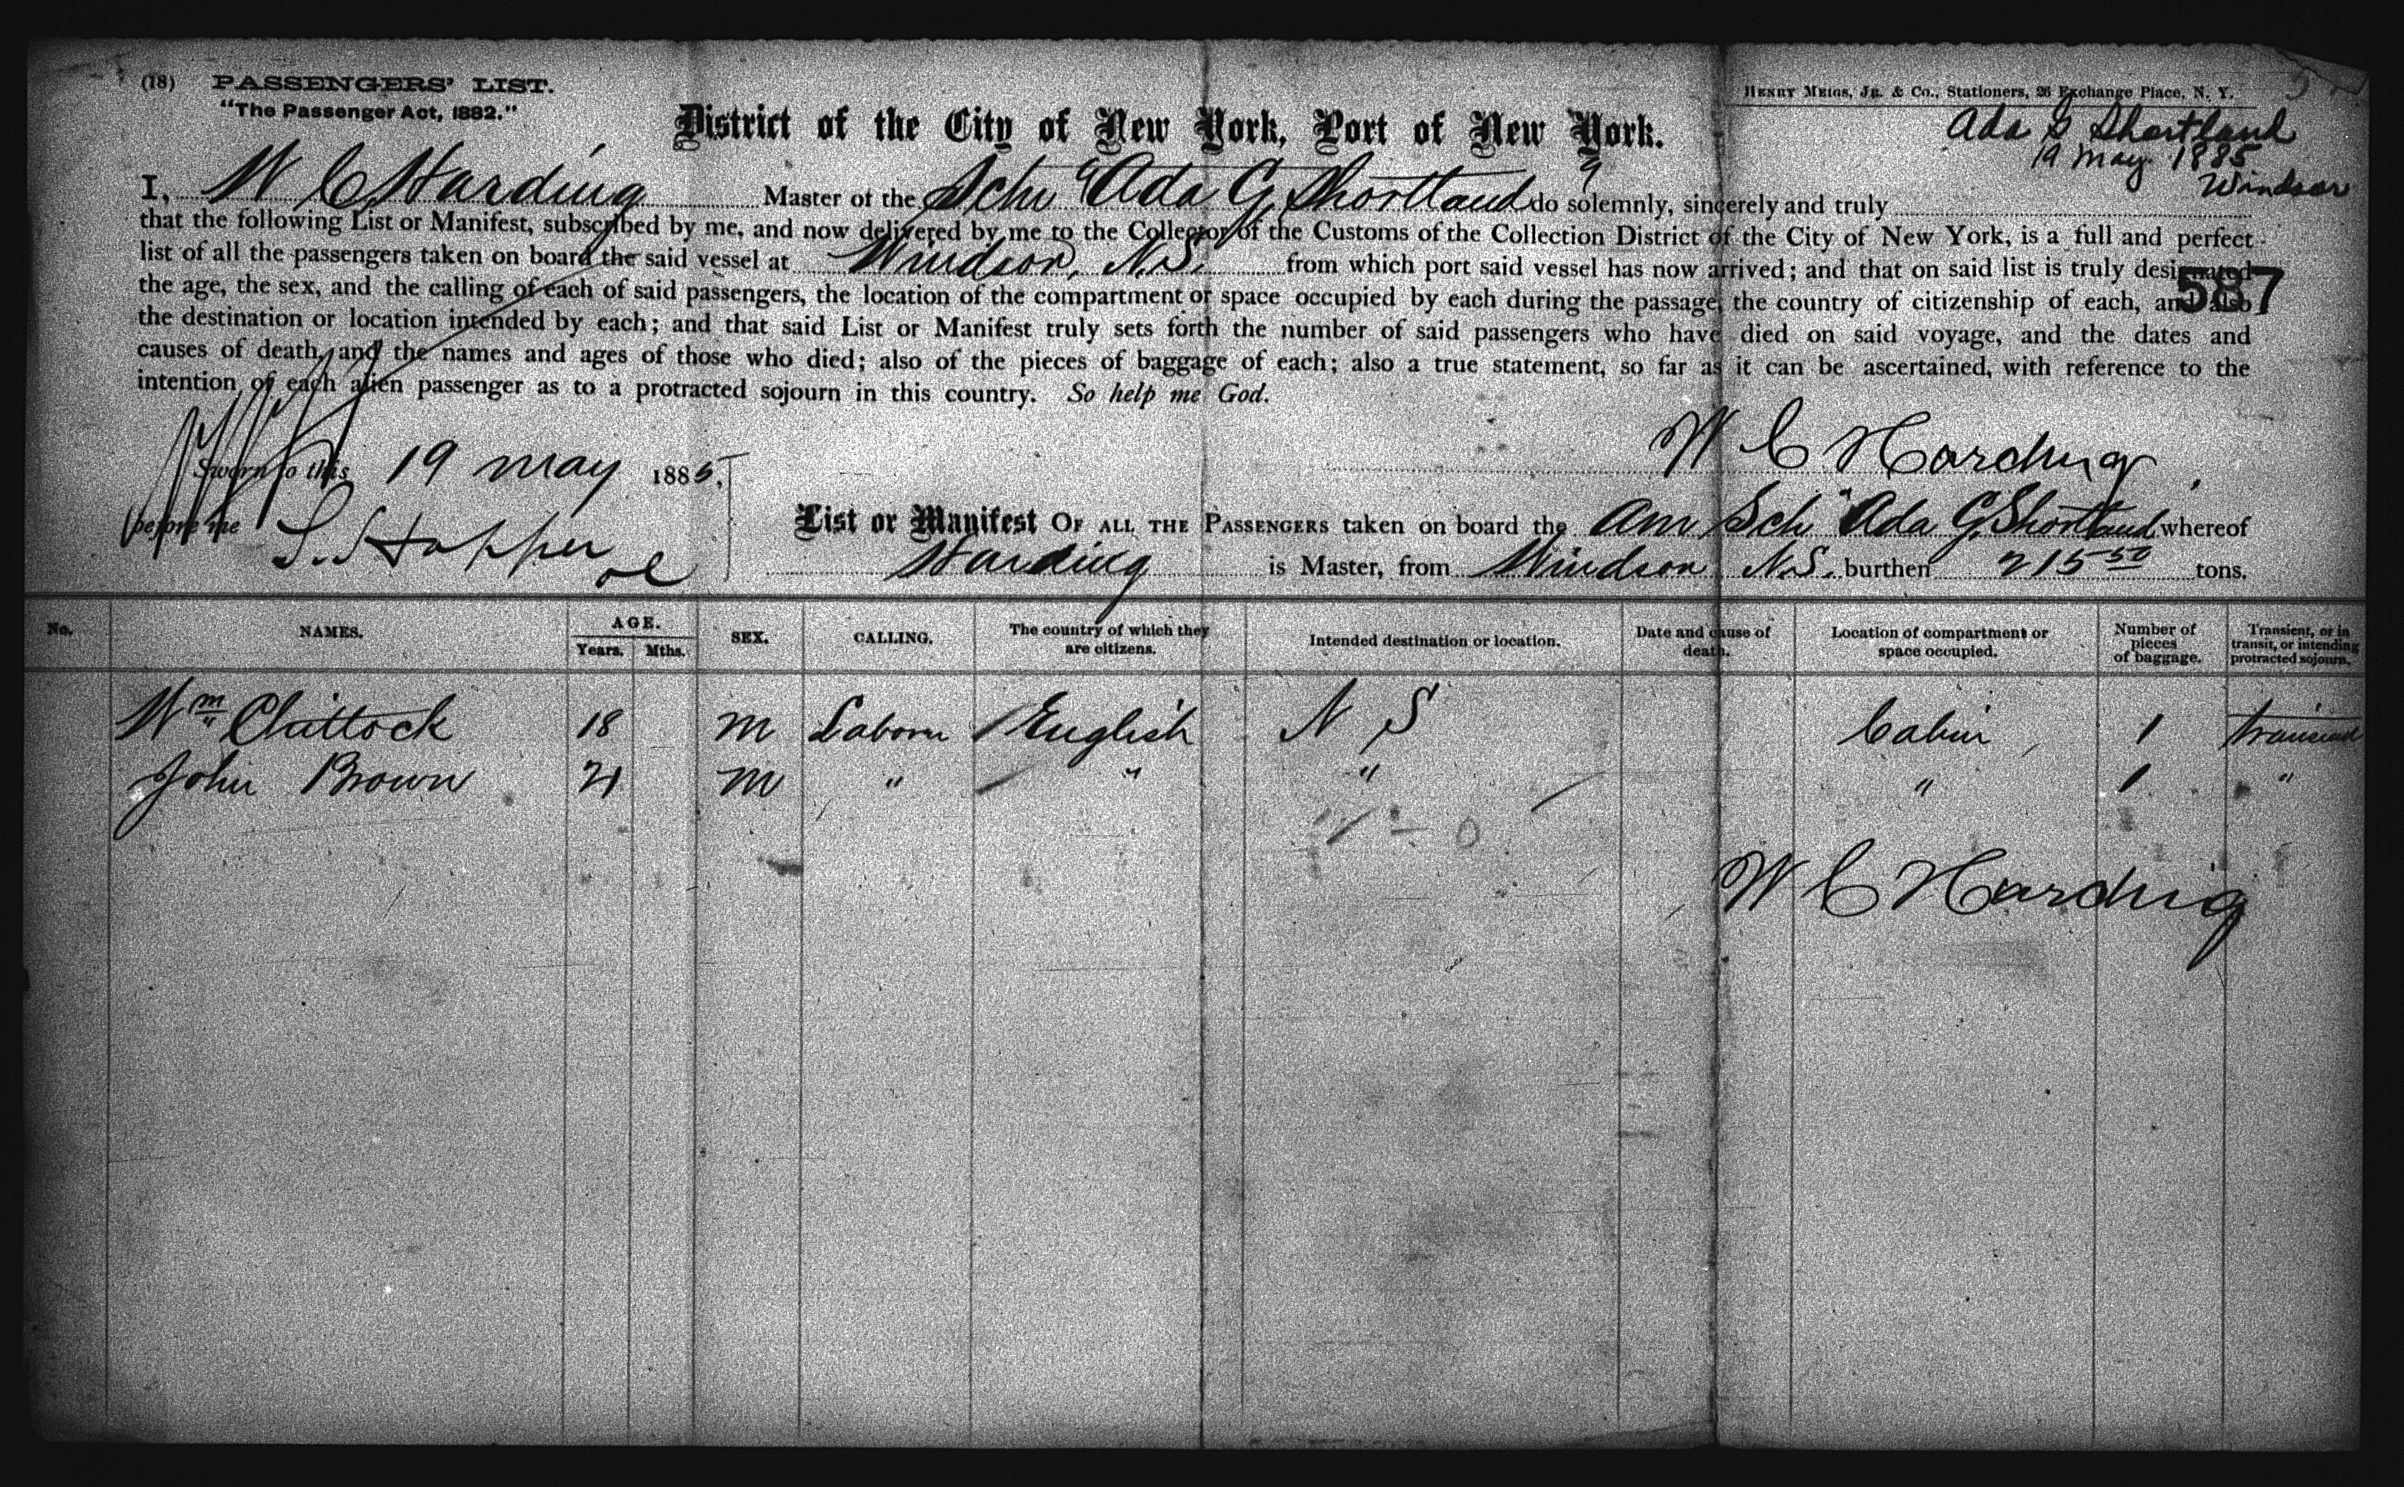 (18) PASSENGERS' LIST.
"The Passenger Act, 1882."
HENRY MEIGS, JR. & CO., Stationers, 26 Exchange Place, N. Y.
District of the City of New York, Port of New York.
Ada G Shortland
19 May 1885
Windsor
I, W C Harding Master of the Schr "Ada G. Shortland" do solemnly, sincerely and truly
that the following List or Manifest, subscribed by me, and now delivered by me to the Collector of the Customs of the Collection District of the City of New York, is a full and perfect
list of all the passengers taken on board the said vessel at Windsor, N.S. from which port said vessel has now arrived; and that on said list is truly designated
the age, the sex, and the calling of each of said passengers, the location of the compartment or space occupied by each during the passage, the country of citizenship of each, and also
587
the destination or location intended by each; and that said List or Manifest truly sets forth the number of said passengers who have died on said voyage, and the dates and
causes of death, and the names and ages of those who died; also of the pieces of baggage of each; also a true statement, so far as it can be ascertained, with reference to the
intention of each alien passenger as to a protracted sojourn in this country. So help me God.
W C Harding
Sworn to this 19 May 1885,
before me
List or Manifest OF ALL THE PASSENGERS taken on board the Am Sch "Ada G. Shortland whereof
Harding is Master, from Windsor N.S. burthen 215 50 tons.
No. NAMES. AGE. Years. Mths. SEX. CALLING. The country of which they are citizens. Intended destination or location. Date and cause of death. Location of compartment or space occupied. Number of pieces of baggage. Transient, or in transit, or intending protracted sojourn.
Wm Chittock 18 M Laborer English N S Cabin 1 Transient
John Brown 21 M " " " " 1 "
W C Harding